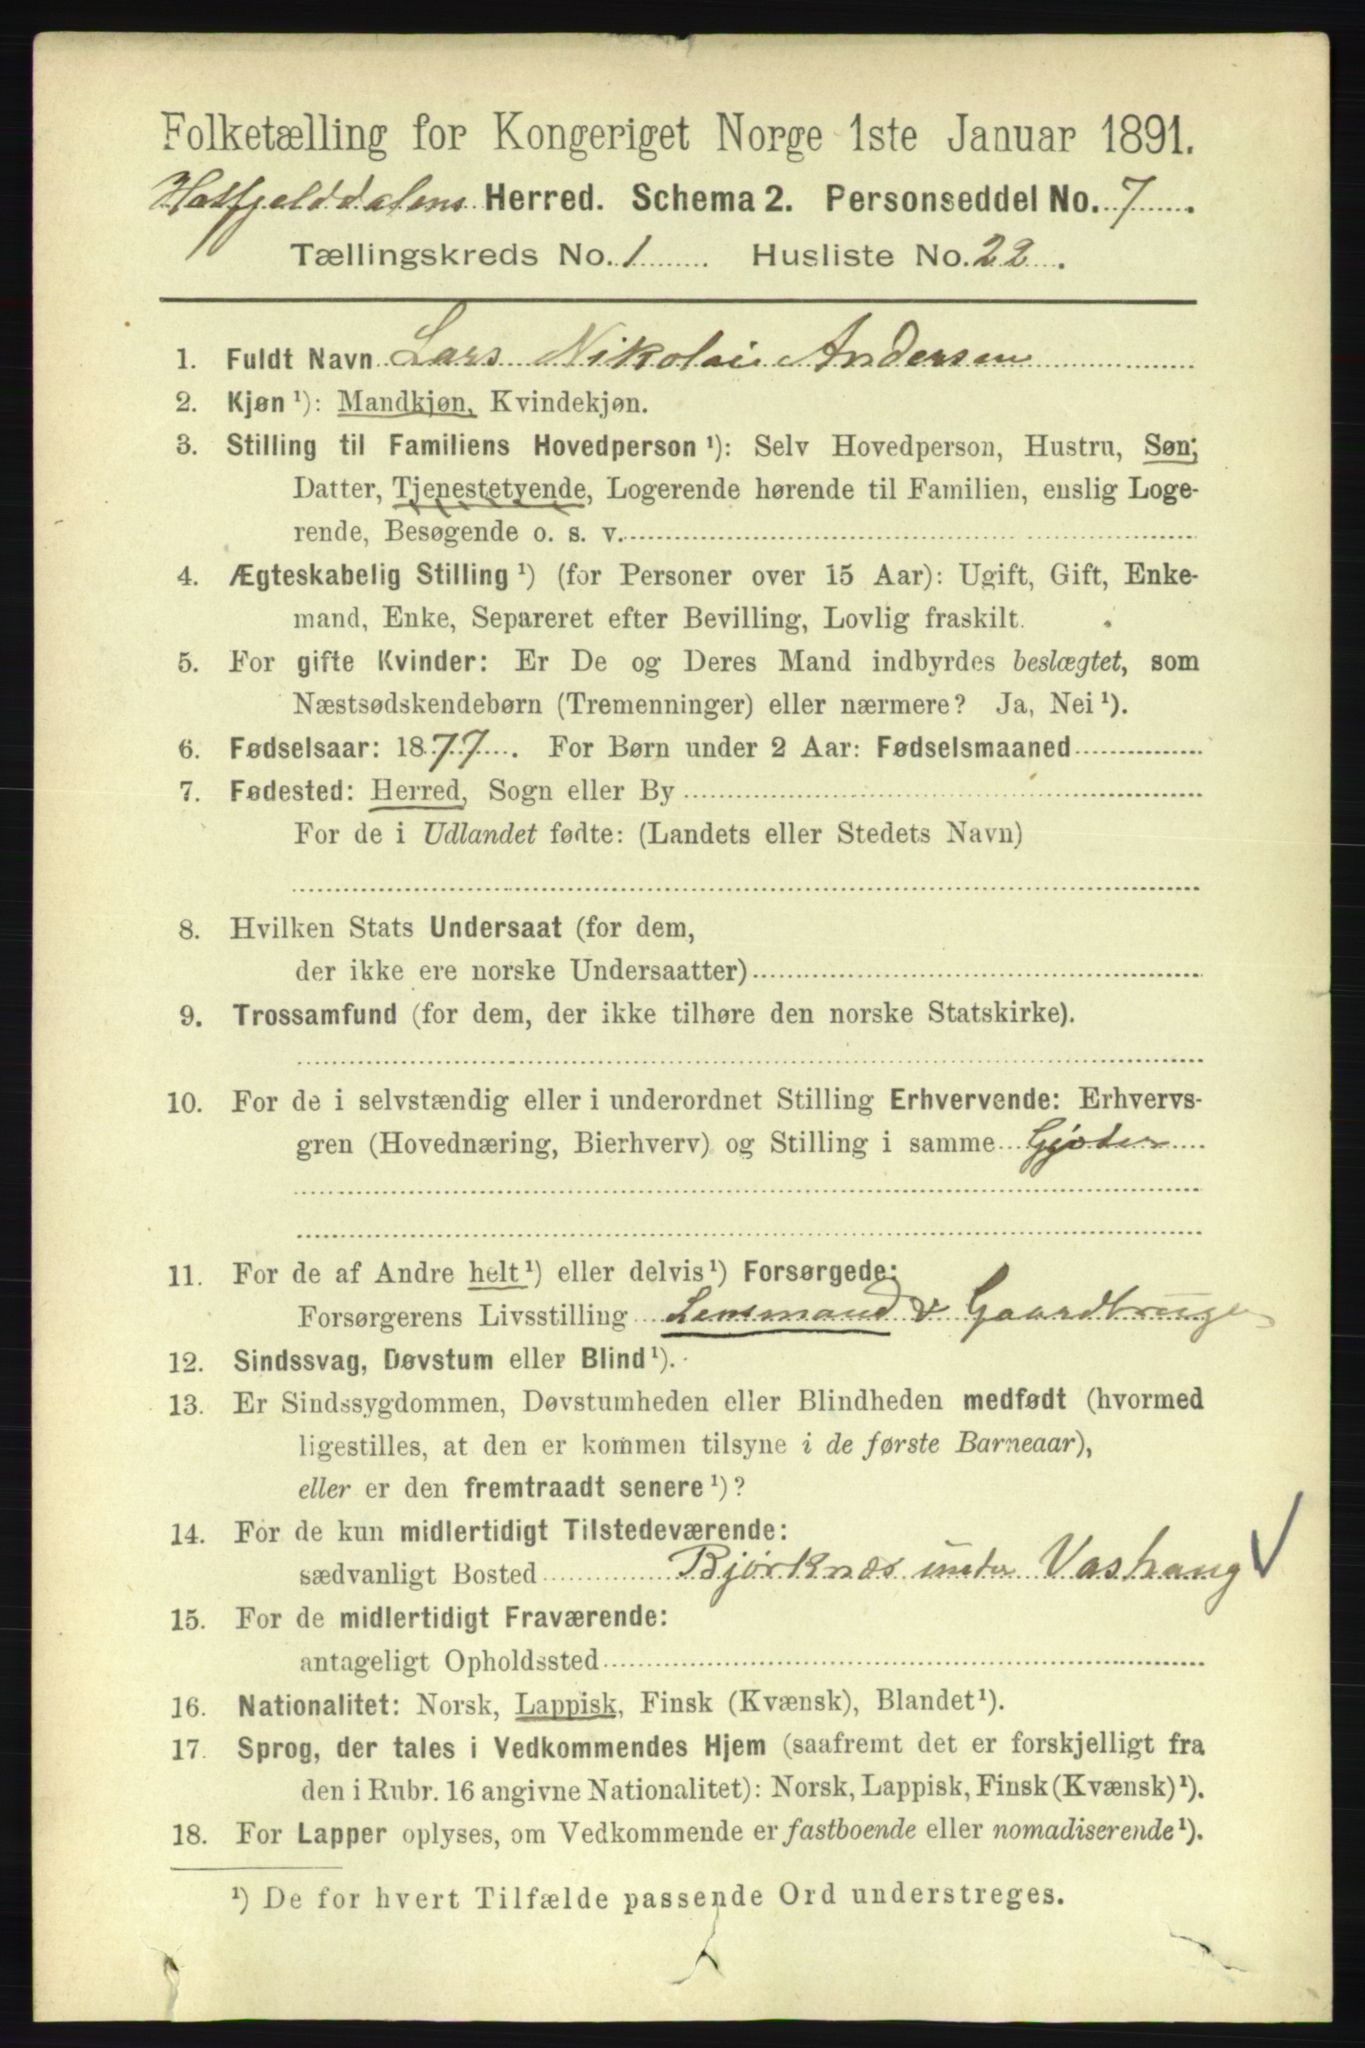 Folketælling for Kongeriget Norge 1ste Januar 1891.
Hatfjelddalens Herred. Schema 2. Personseddel No. 7
Tællingskreds No. 1 Husliste No. 22.
1. Fuldt Navn Lars Nikolai Andersen
2. Kjøn ¹): Mandkjøn, Kvindekjøn.
3. Stilling til Familiens Hovedperson ¹): Selv Hovedperson, Hustru, Søn,
Datter, Tjenestetyende, Logerende hørende til Familien, enslig Loge-
rende, Besøgende o. s. v.
4. Ægteskabelig Stilling ¹) (for Personer over 15 Aar): Ugift, Gift, Enke-
mand, Enke, Separeret efter Bevilling, Lovlig fraskilt.
5. For gifte Kvinder: Er De og Deres Mand indbyrdes beslægtet, som
Næstsødskendebørn (Tremenninger) eller nærmere? Ja, Nei ¹).
6. Fødselsaar: 1877. For Børn under 2 Aar: Fødselsmaaned
7. Fødested: Herred, Sogn eller By
For de i Udlandet fødte: (Landets eller Stedets Navn)
8. Hvilken Stats Undersaat (for dem,
der ikke ere norske Undersaatter)
9. Trossamfund (for dem, der ikke tilhøre den norske Statskirke).
10. For de i selvstændig eller i underordnet Stilling Erhvervende: Erhvervs-
gren (Hovednæring, Bierhverv) og Stilling i samme Gjøter
11. For de af Andre helt ¹) eller delvis ¹) Forsørgede:
Forsørgerens Livsstilling Lensmand & Gaardbruger
12. Sindssvag, Døvstum eller Blind ¹).
13. Er Sindssygdommen, Døvstumheden eller Blindheden medfødt (hvormed
ligestilles, at den er kommen tilsyne i de første Barneaar),
eller er den fremtraadt senere ¹)?
14. For de kun midlertidigt Tilstedeværende:
sædvanligt Bosted Bjørknæs under Vashaug
15. For de midlertidigt Fraværende:
antageligt Opholdssted
16. Nationalitet: Norsk, Lappisk, Finsk (Kvænsk), Blandet ¹).
17. Sprog, der tales i Vedkommendes Hjem (saafremt det er forskjelligt fra
den i Rubr. 16 angivne Nationalitet): Norsk, Lappisk, Finsk (Kvænsk) ¹).
18. For Lapper oplyses, om Vedkommende er fastboende eller nomadiserende ¹).
¹) De for hvert Tilfælde passende Ord understreges.